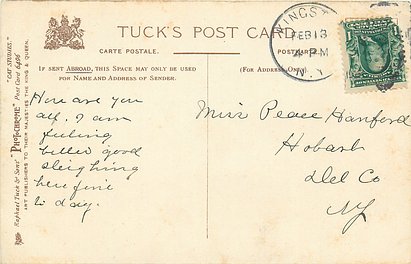 TUCK'S POST CARD
CARTE POSTALE.
POSTKARTE
IF SENT ABROAD, THIS SPACE MAY ONLY BE USED
FOR NAME AND ADDRESS OF SENDER.
(FOR ADDRESS ONLY)
KINGST
FEB 13
4 PM
N.Y.
"CAT STUDIES."
Raphael Tuck & Sons' "PHOTOCHROME" Post Card
ART PUBLISHERS TO THEIR MAJESTIES THE KING & QUEEN.
How are you
all, I am
feeling
better good
sleighing
here fine
to day.
Miss Peace Hanford
Hobart
Del Co
NY